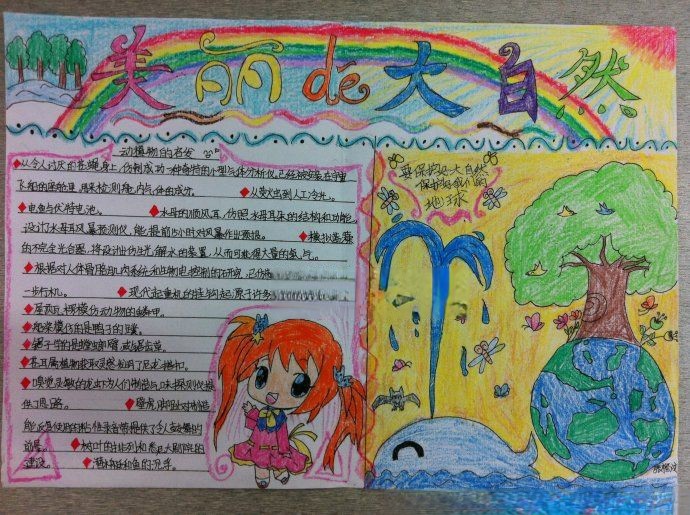 美丽de大自然
动植物的启发
◆从令人讨厌的苍蝇身上,仿制成功一种奇特的小型气体分析仪,已经被安装在宇宙
飞船的座舱里,用来检测舱内气体的成分。 ◆从萤火虫到人工冷光。
◆电鱼与伏特电池。 ◆水母的顺风耳,仿照水母耳朵的结构和功能,
设计了水母耳风暴预测仪,能提前15小时对风暴作出预报。 ◆模拟蓝藻
的不完全光合器,将设计出仿生光解水的装置,从而可获得大量的氢气。
◆根据对人体骨骼肌肉系统和生物电控制的研究,已仿制
一步行机。 ◆现代起重机的挂钩起源于许多
◆屋顶瓦楞模仿动物的鳞甲。
◆船桨模仿的是鸭子的蹼。
◆锯子学的是螳螂臂,或锯齿草。
◆苍耳属植物获取灵感发明了尼龙搭扣。
◆嗅觉灵敏的龙虾为人们制造气味探测仪提
供了思路。 ◆壁虎脚趾对制造
能反复使用的粘性录音带提供了令人鼓舞的
前景。 ◆树叶的排列和悉尼大剧院的
建设。 ◆潜水艇和鱼的沉浮。
要保护好大自然
保护好我们的
地球